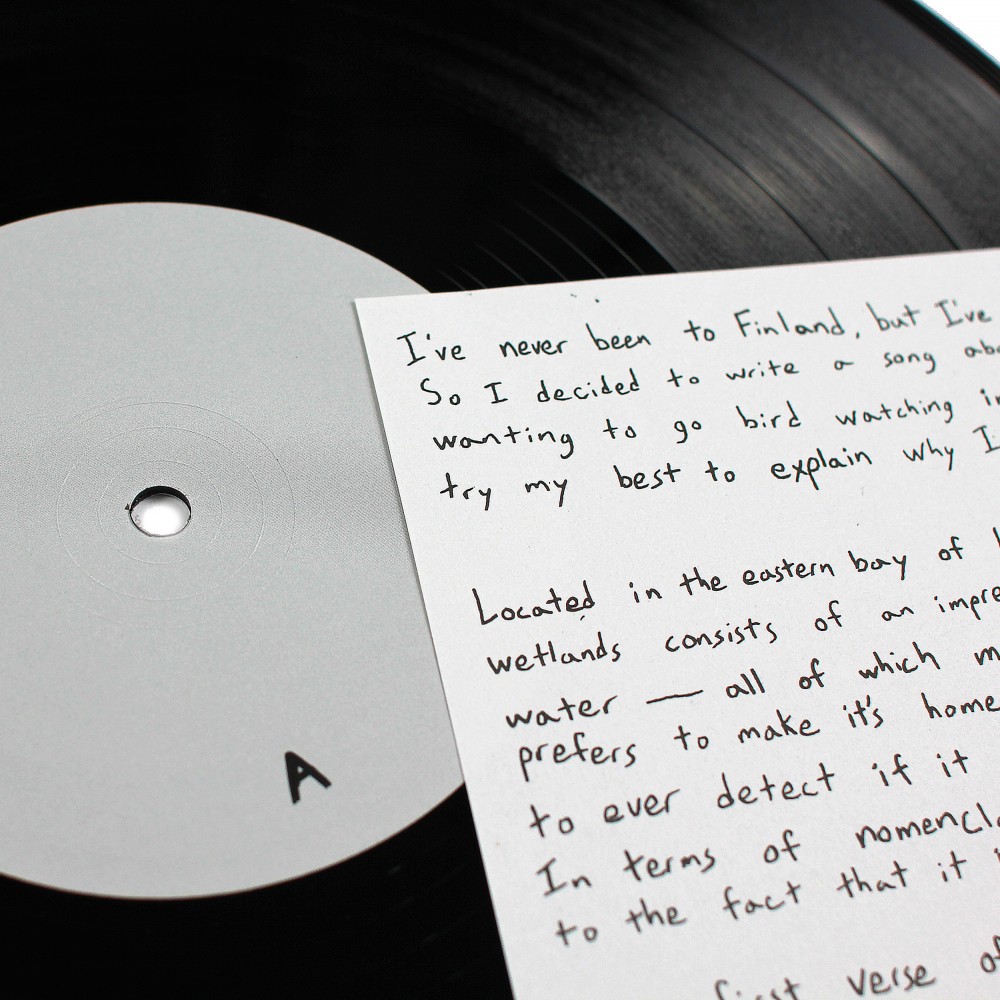 A
I've never been to Finland, but I've
So I decided to write a song abo
wanting to go bird watching in
try my best to explain why I
Located in the eastern bay of
wetlands consists of an impre
water — all of which m
prefers to make it's home
to ever detect if it
In terms of nomencl
to the fact that it
first verse of